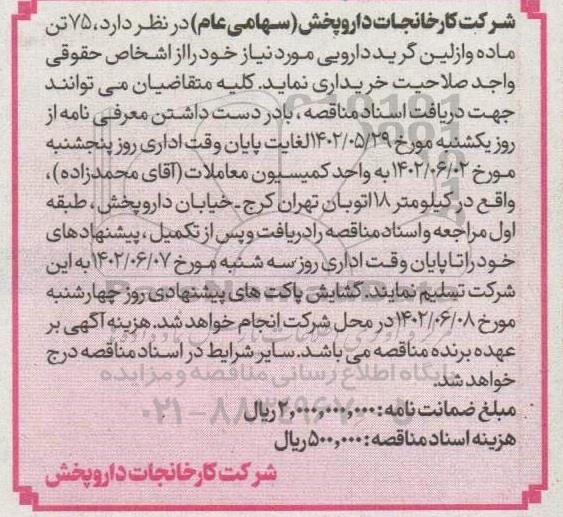 شرکت کارخانجات داروپخش (سهامی عام) در نظر دارد، ۷۵ تن
ماده وازلین گرید دارویی مورد نیاز خود را از اشخاص حقوقی
واجد صلاحیت خریداری نماید. کلیه متقاضیان می توانند
جهت دریافت اسناد مناقصه ، با در دست داشتن معرفی نامه از
روز یکشنبه مورخ ۱۴۰۲/۰۵/۲۹ لغایت پایان وقت اداری روز پنجشنبه
مورخ ۱۴۰۲/۰۶/۰۲ به واحد کمیسیون معاملات (آقای محمدزاده)،
واقع در کیلومتر ۱۸ اتوبان تهران کرج - خیابان داروپخش ، طبقه
اول مراجعه و اسناد مناقصه را دریافت و پس از تکمیل ، پیشنهادهای
خود را تا پایان وقت اداری روز سه شنبه مورخ ۱۴۰۲/۰۶/۰۷ به این
شرکت تسلیم نمایند. گشایش پاکت های پیشنهادی روز چهارشنبه
مورخ ۱۴۰۲/۰۶/۰۸ در محل شرکت انجام خواهد شد. هزینه آگهی بر
عهده برنده مناقصه می باشد. سایر شرایط در اسناد مناقصه درج
خواهد شد.
پایگاه اطلاع رسانی مناقصه و مزایده
مبلغ ضمانت نامه : ۲,۰۰۰,۰۰۰,۰۰۰ ریال
هزینه اسناد مناقصه : ۵۰۰,۰۰۰ ریال
شرکت کارخانجات داروپخش